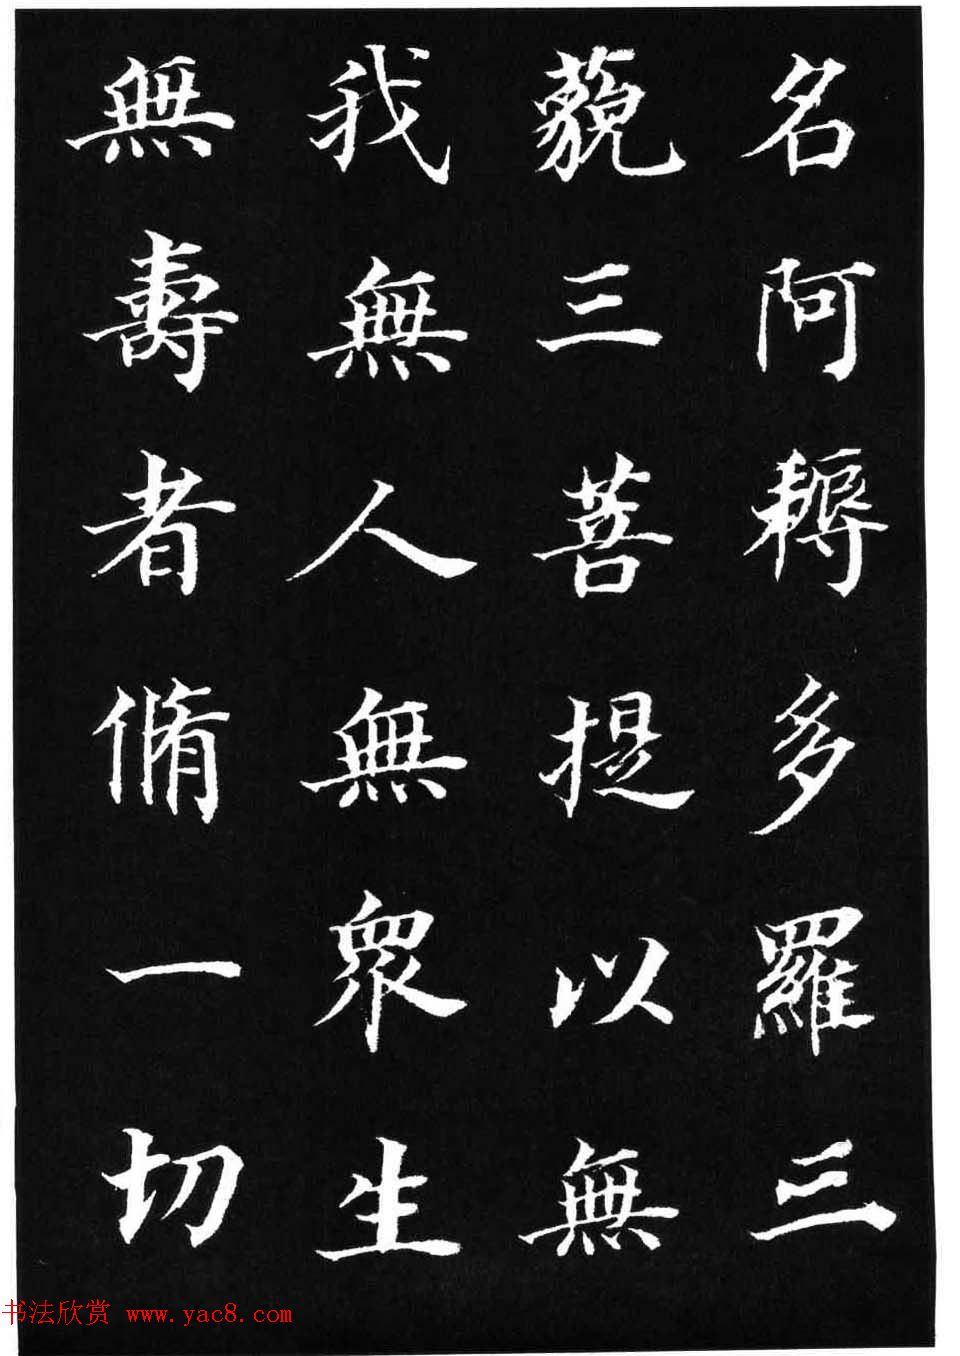 名阿耨多羅三
藐三菩提以無
我無人無衆生
無壽者脩一切
书法欣赏 www.yac8.com